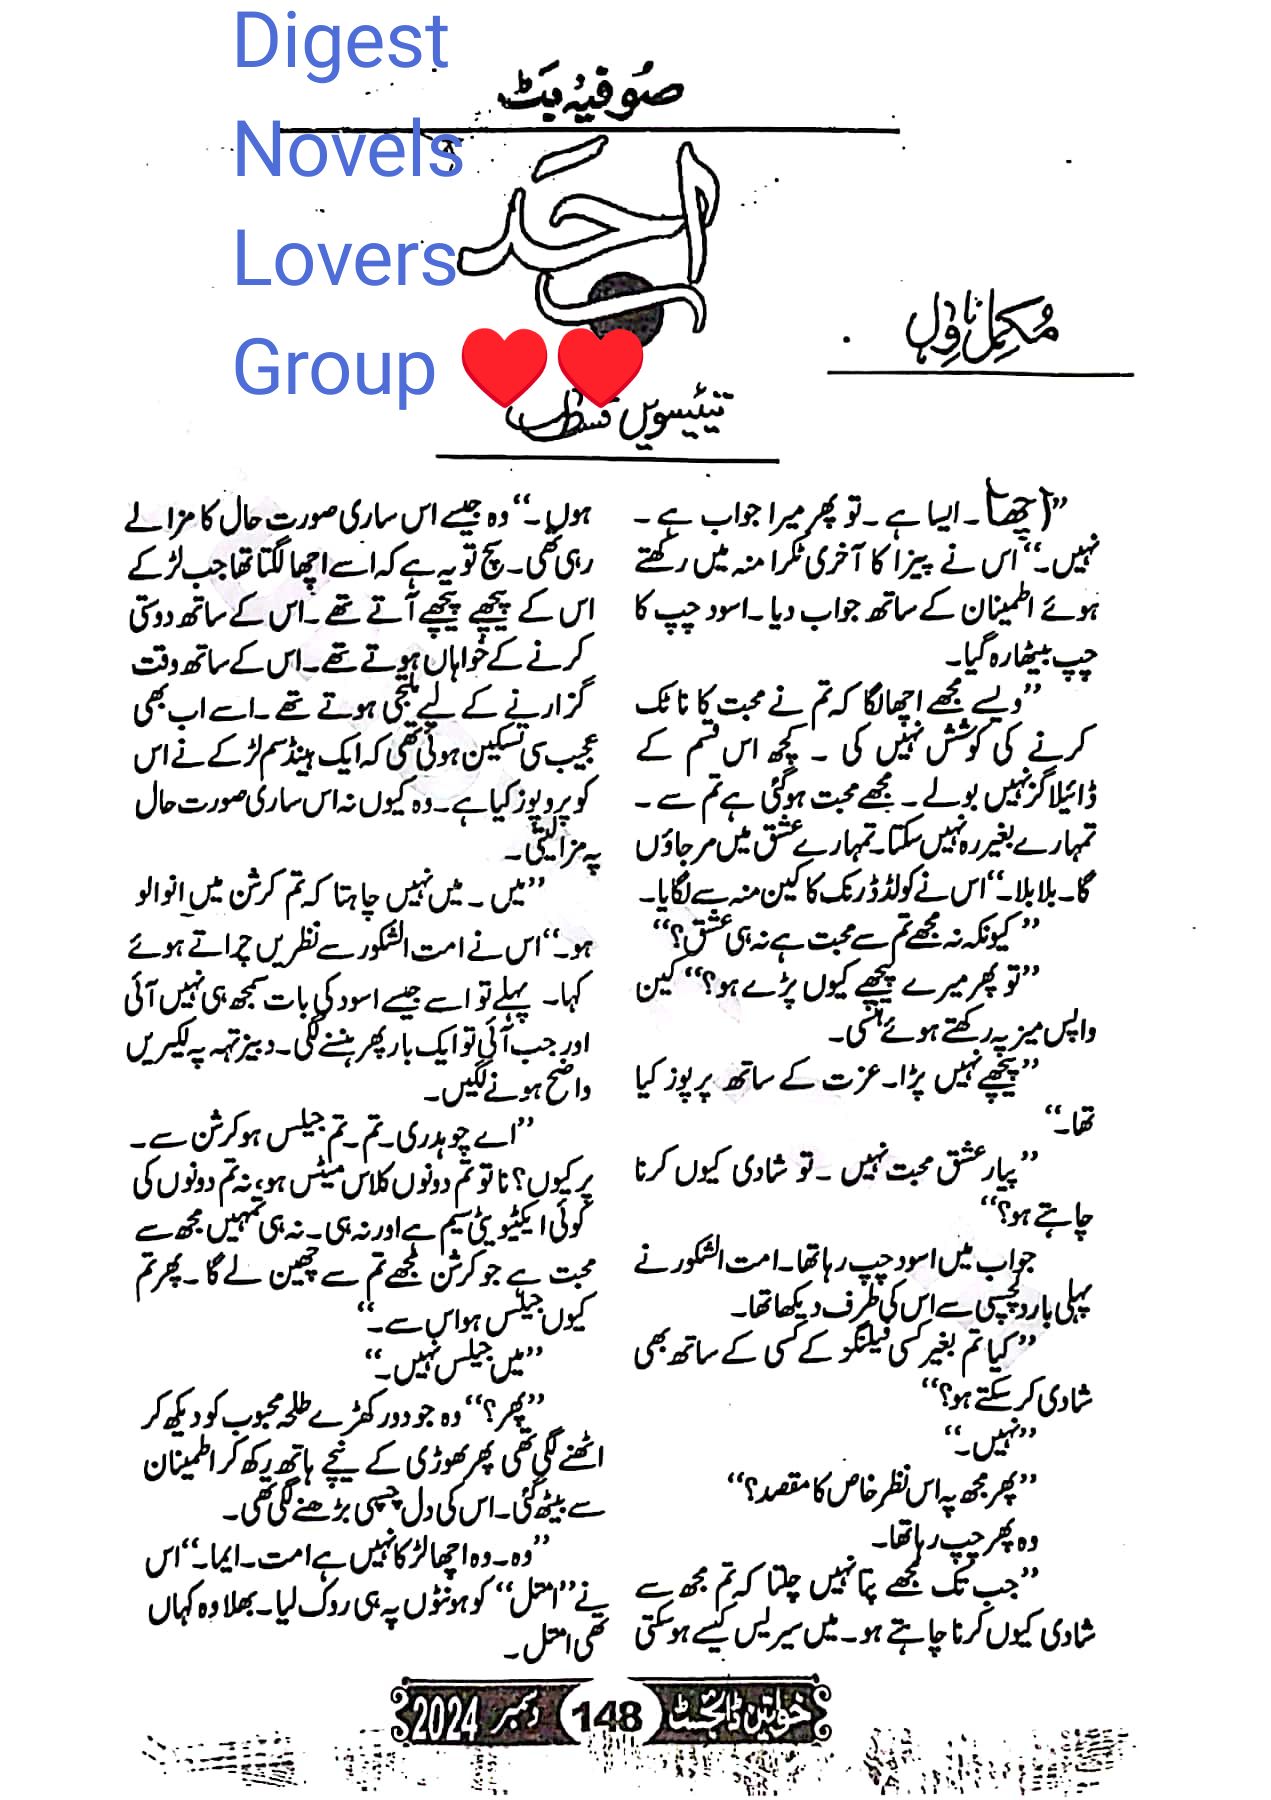 Digest
Novels
Lovers
Group ❤️❤️
صوفیہ بٹ
احد
مکمل ناول
تیئیسویں قسط
”اچھا۔ ایسا ہے۔ تو پھر میرا جواب ہے۔
نہیں۔“ اس نے پیزا کا آخری ٹکرا منہ میں رکھتے
ہوئے اطمینان کے ساتھ جواب دیا۔ اسود چپ کا
چپ بیٹھا رہ گیا۔
”ویسے مجھے اچھا لگا کہ تم نے محبت کا ناٹک
کرنے کی کوشش نہیں کی ۔ کچھ اس قسم کے
ڈائیلاگز نہیں بولے۔ مجھے محبت ہوگئی ہے تم سے۔
تمہارے بغیر رہ نہیں سکتا۔ تمہارے عشق میں مر جاؤں
گا۔ بلا بلا۔“ اس نے کولڈ ڈرنک کا کین منہ سے لگایا۔
”کیونکہ نہ مجھے تم سے محبت ہے نہ ہی عشق؟“
”تو پھر میرے پیچھے کیوں پڑے ہو؟“ کین
واپس میز پہ رکھتے ہوئے ہنسی۔
”پیچھے نہیں پڑا۔ عزت کے ساتھ پرپوز کیا
تھا۔“
”پیار عشق محبت نہیں ۔ تو شادی کیوں کرنا
چاہتے ہو؟“
جواب میں اسود چپ رہا تھا۔ امت الشکور نے
پہلی بار دلچسپی سے اس کی طرف دیکھا تھا۔
”کیا تم بغیر کسی فیلنگز کے کسی کے ساتھ بھی
شادی کر سکتے ہو؟“
”نہیں۔“
”پھر مجھ پہ اس نظر خاص کا مقصد؟“
وہ پھر چپ رہا تھا۔
”جب تک مجھے پتا نہیں چلتا کہ تم مجھ سے
شادی کیوں کرنا چاہتے ہو۔ میں سیریس کیسے ہو سکتی
ہوں۔“ وہ جیسے اس ساری صورت حال کا مزا لے
رہی تھی۔ سچ تو یہ ہے کہ اسے اچھا لگتا تھا جب لڑکے
اس کے پیچھے پیچھے آتے تھے۔ اس کے ساتھ دوستی
کرنے کے خواہاں ہوتے تھے۔ اس کے ساتھ وقت
گزارنے کے لیے ملتجی ہوتے تھے۔ اسے اب بھی
عجیب سی تسکین ہوئی تھی کہ ایک ہینڈسم لڑکے نے اس
کو پروپوز کیا ہے۔ وہ کیوں نہ اس ساری صورت حال
پہ مزا لیتی۔
”میں ۔ میں نہیں چاہتا کہ تم کرشن میں انوالو
ہو۔“ اس نے امت الشکور سے نظریں چراتے ہوئے
کہا۔ پہلے تو اسے جیسے اسود کی بات سمجھ ہی نہیں آئی
اور جب آئی تو ایک بار پھر ہننے لگی۔ دبیز تہہ پہ لکیریں
واضح ہونے لگیں۔
”اے چوہدری۔ تم۔ تم جیلس ہو کرشن سے۔
پر کیوں؟ نا تو تم دونوں کلاس میٹس ہو، نہ تم دونوں کی
کوئی ایکٹیویٹی سیم ہے اور نہ ہی۔ نہ ہی تمہیں مجھ سے
محبت ہے جو کرشن مجھے تم سے چھین لے گا ۔ پھر تم
کیوں جیلس ہو اس سے۔“
”میں جیلس نہیں۔“
”پھر؟“ وہ جو دور کھڑے طلحہ محبوب کو دیکھ کر
اٹھنے لگی تھی پھر ٹھوڑی کے نیچے ہاتھ رکھ کر اطمینان
سے بیٹھ گئی۔ اس کی دل چسپی بڑھنے لگی تھی۔
”وہ۔ وہ اچھا لڑکا نہیں ہے امت۔ ایما۔“ اس
نے ”امتل“ کو ہونٹوں پہ ہی روک لیا۔ بھلا وہ کہاں
تھی امتل۔
خواتین ڈائجسٹ 148 دسمبر 2024